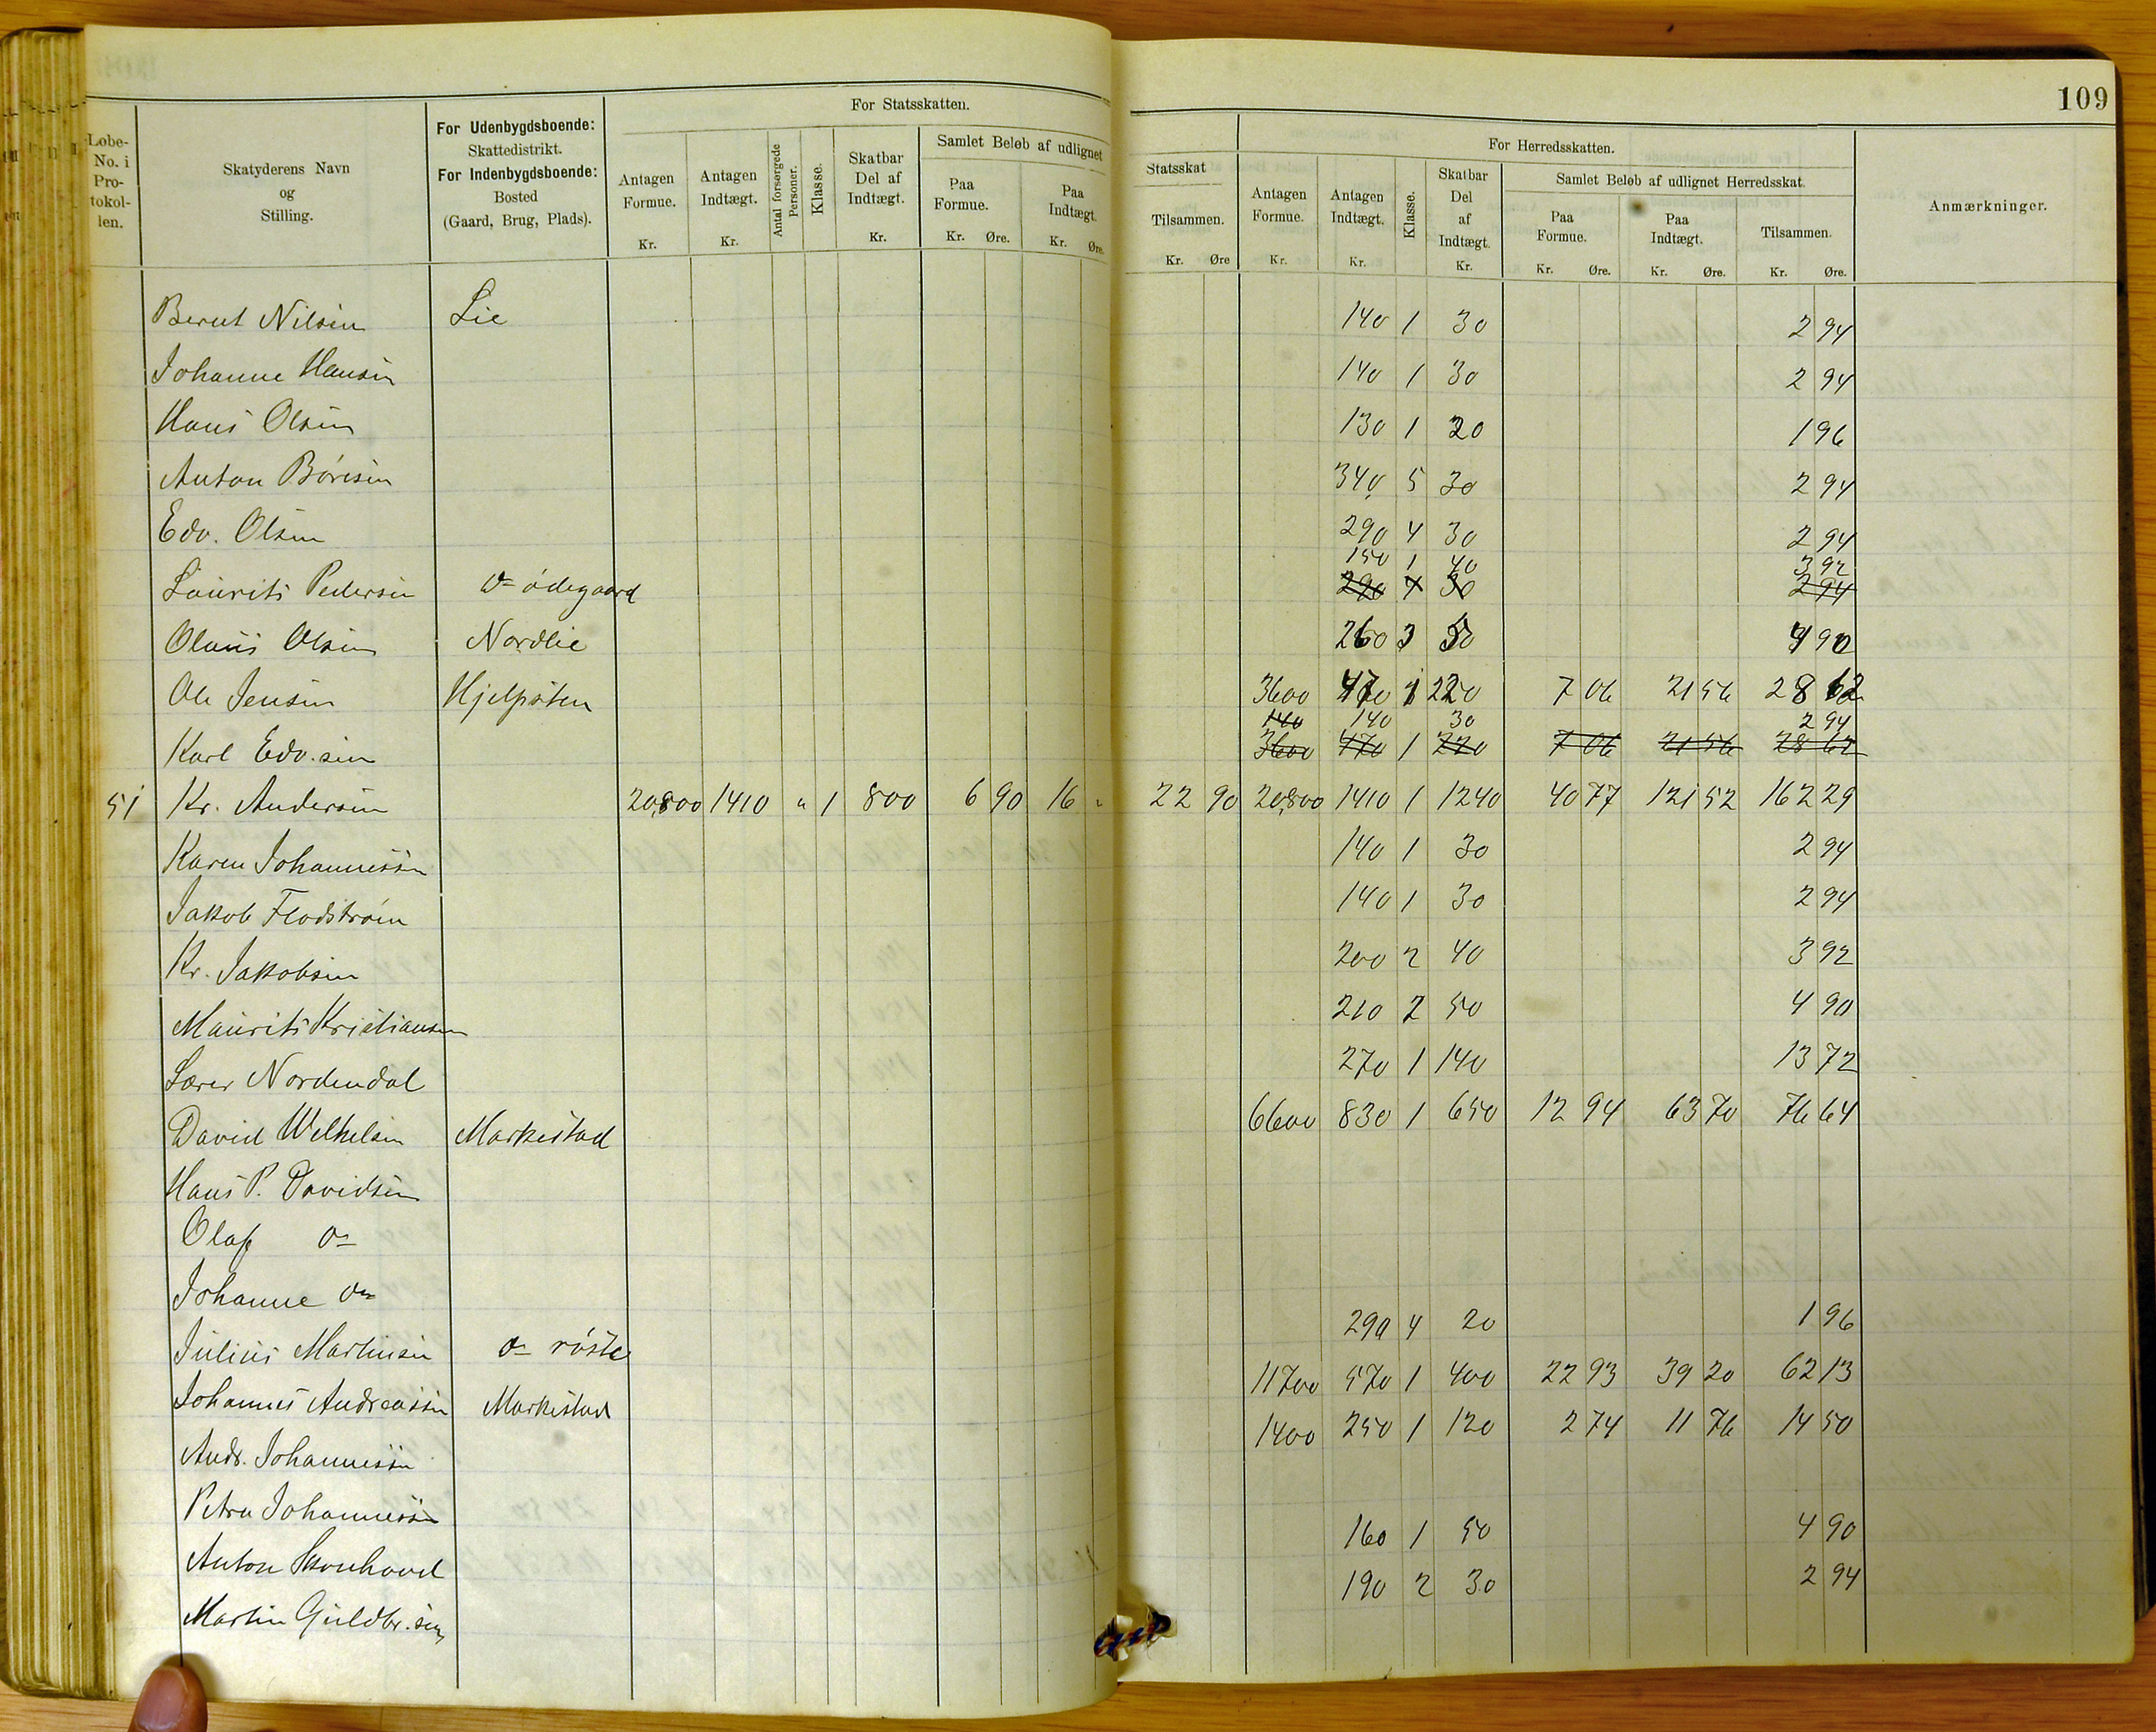 109
For Statsskatten.
For Herredsskatten.
Løbe-No. i Pro-tokol-len.
Skatyderens Navn og Stilling.
For Udenbygdsboende: Skattedistrikt. For Indenbygdsboende: Bosted (Gaard, Brug, Plads).
Antagen Formue. Kr.
Antagen Indtægt. Kr.
Antal forsørgede Personer.
Klasse.
Skatbar Del af Indtægt. Kr.
Samlet Beløb af udlignet Statsskat
Paa Formue. Kr. Øre.
Paa Indtægt. Kr. Øre.
Tilsammen. Kr. Øre
Antagen Formue. Kr.
Antagen Indtægt. Kr.
Klasse.
Skatbar Del af Indtægt. Kr.
Samlet Beløb af udlignet Herredsskat.
Paa Formue. Kr. Øre.
Paa Indtægt. Kr. Øre.
Tilsammen. Kr. Øre.
Anmærkninger.
Bernt Nilsen Lie 140 1 30 2 94
Johanne Hansen 140 1 30 2 94
Hans Olsen 130 1 20 1 96
Anton Børesen 340 5 30 2 94
Edv. Olsen 290 4 30 2 94
150 1 40 3 92
Laurits Pedersen do ødegaard 290 4 30 2 94
Olaus Olsen Nordlie 260 3 50 4 90
Ole Jensen Hjelpsten 3600 470 1 220 7 06 21 56 28 62
140 140 30 2 94
Karl Edv.sen 3600 470 1 220 7 06 21 56 28 62
51 Kr. Andersen 20,800 1410 " 1 800 6 90 16 " 22 90 20,800 1410 1 1240 40 77 121 52 162 29
Karen Johannessen 140 1 30 2 94
Jakob Flodstrøm 140 1 30 2 94
Kr. Jakobsen 200 2 40 3 92
Maurits Kristiansen 210 2 50 4 90
Lærer Nordendal 270 1 140 13 72
David Wilhelsen Markestad 6600 830 1 650 12 94 63 70 76 64
Hans P. Davidsen
Olaf do
Johanne do
Julius Martinsen do røste 290 4 20 1 96
Johannes Andreassen Markestad 11700 570 1 400 22 93 39 20 62 13
Andr. Johannessen 1400 250 1 120 2 74 11 76 14 50
Petra Johannessen
Anton Skonhovd 160 1 50 4 90
Martin Guldbr.sen 190 2 30 2 94